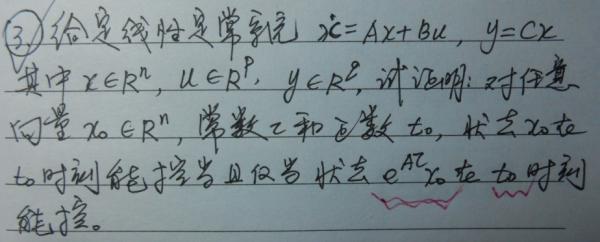 ③ 给定线性定常系统 ẋ=Ax+Bu, y=Cx
其中 x∈Rⁿ, u∈Rᵖ, y∈R^q, 试证明: 对任意
向量 x₀∈Rⁿ, 常数τ和正数 t₀, 状态 x₀在
t₀时刻能控当且仅当状态 e^{Aτ}x₀在 t₀时刻
能控。